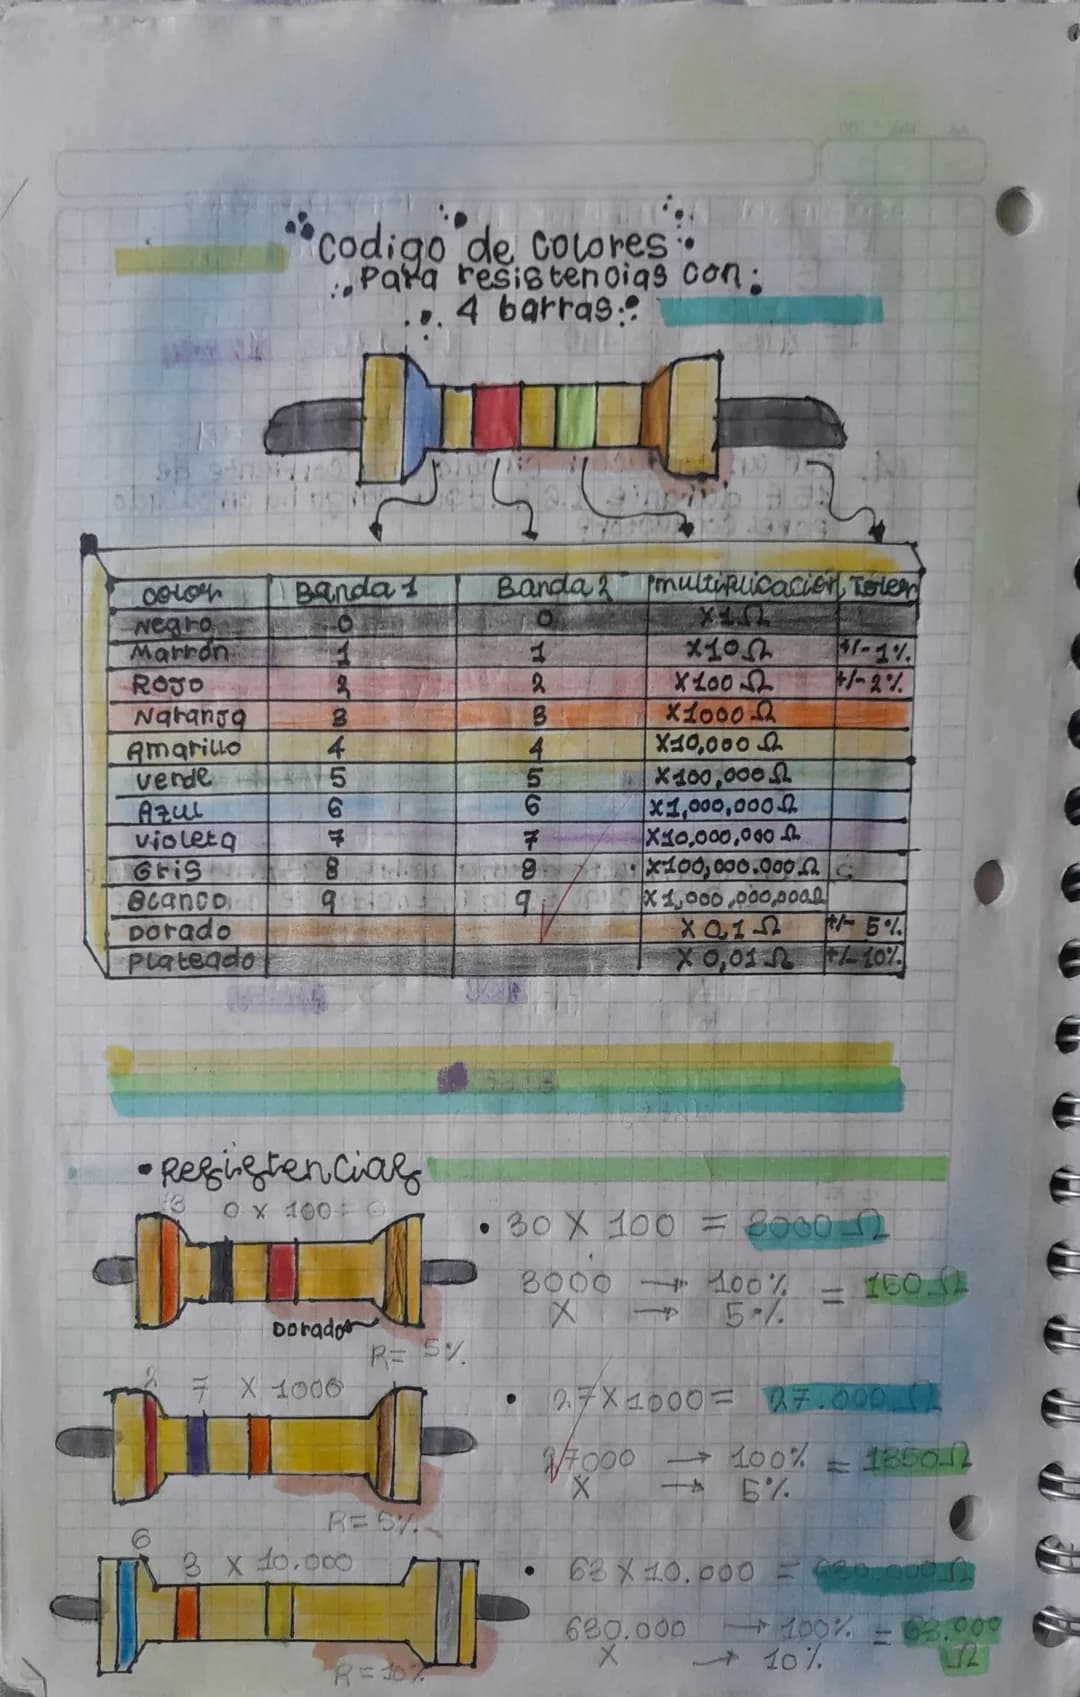 Codigo de colores
Para resistencias con
4 barras
color Banda 1 Banda 2 multiplicación Toler
Negro 0 0 X1Ω
Marrón 1 1 X10Ω +/-1%
Rojo 2 2 X100Ω +/-2%
Naranja 3 3 X1000Ω
Amarillo 4 4 X10,000Ω
verde 5 5 X100,000Ω
Azul 6 6 X1,000,000Ω
violeta 7 7 X10,000,000Ω
Gris 8 8 X100,000.000Ω
Blanco 9 9 X1,000,000,000Ω
Dorado X 0,1Ω +/- 5%
Plateado X 0,01Ω +/-10%
• Resistencias
3 0 X 100=
• 30 X 100 = 3000Ω
3000 → 100% = 150Ω
X → 5%
Dorado
R= 5%
2 7 X 1000
• 27X1000= 27.000Ω
27000 → 100% = 1350Ω
X → 5%
R=5%
6 3 X 10.000
• 63X10.000 = 630.000Ω
630.000 → 100% = 63.000Ω
X → 10%
R=10%